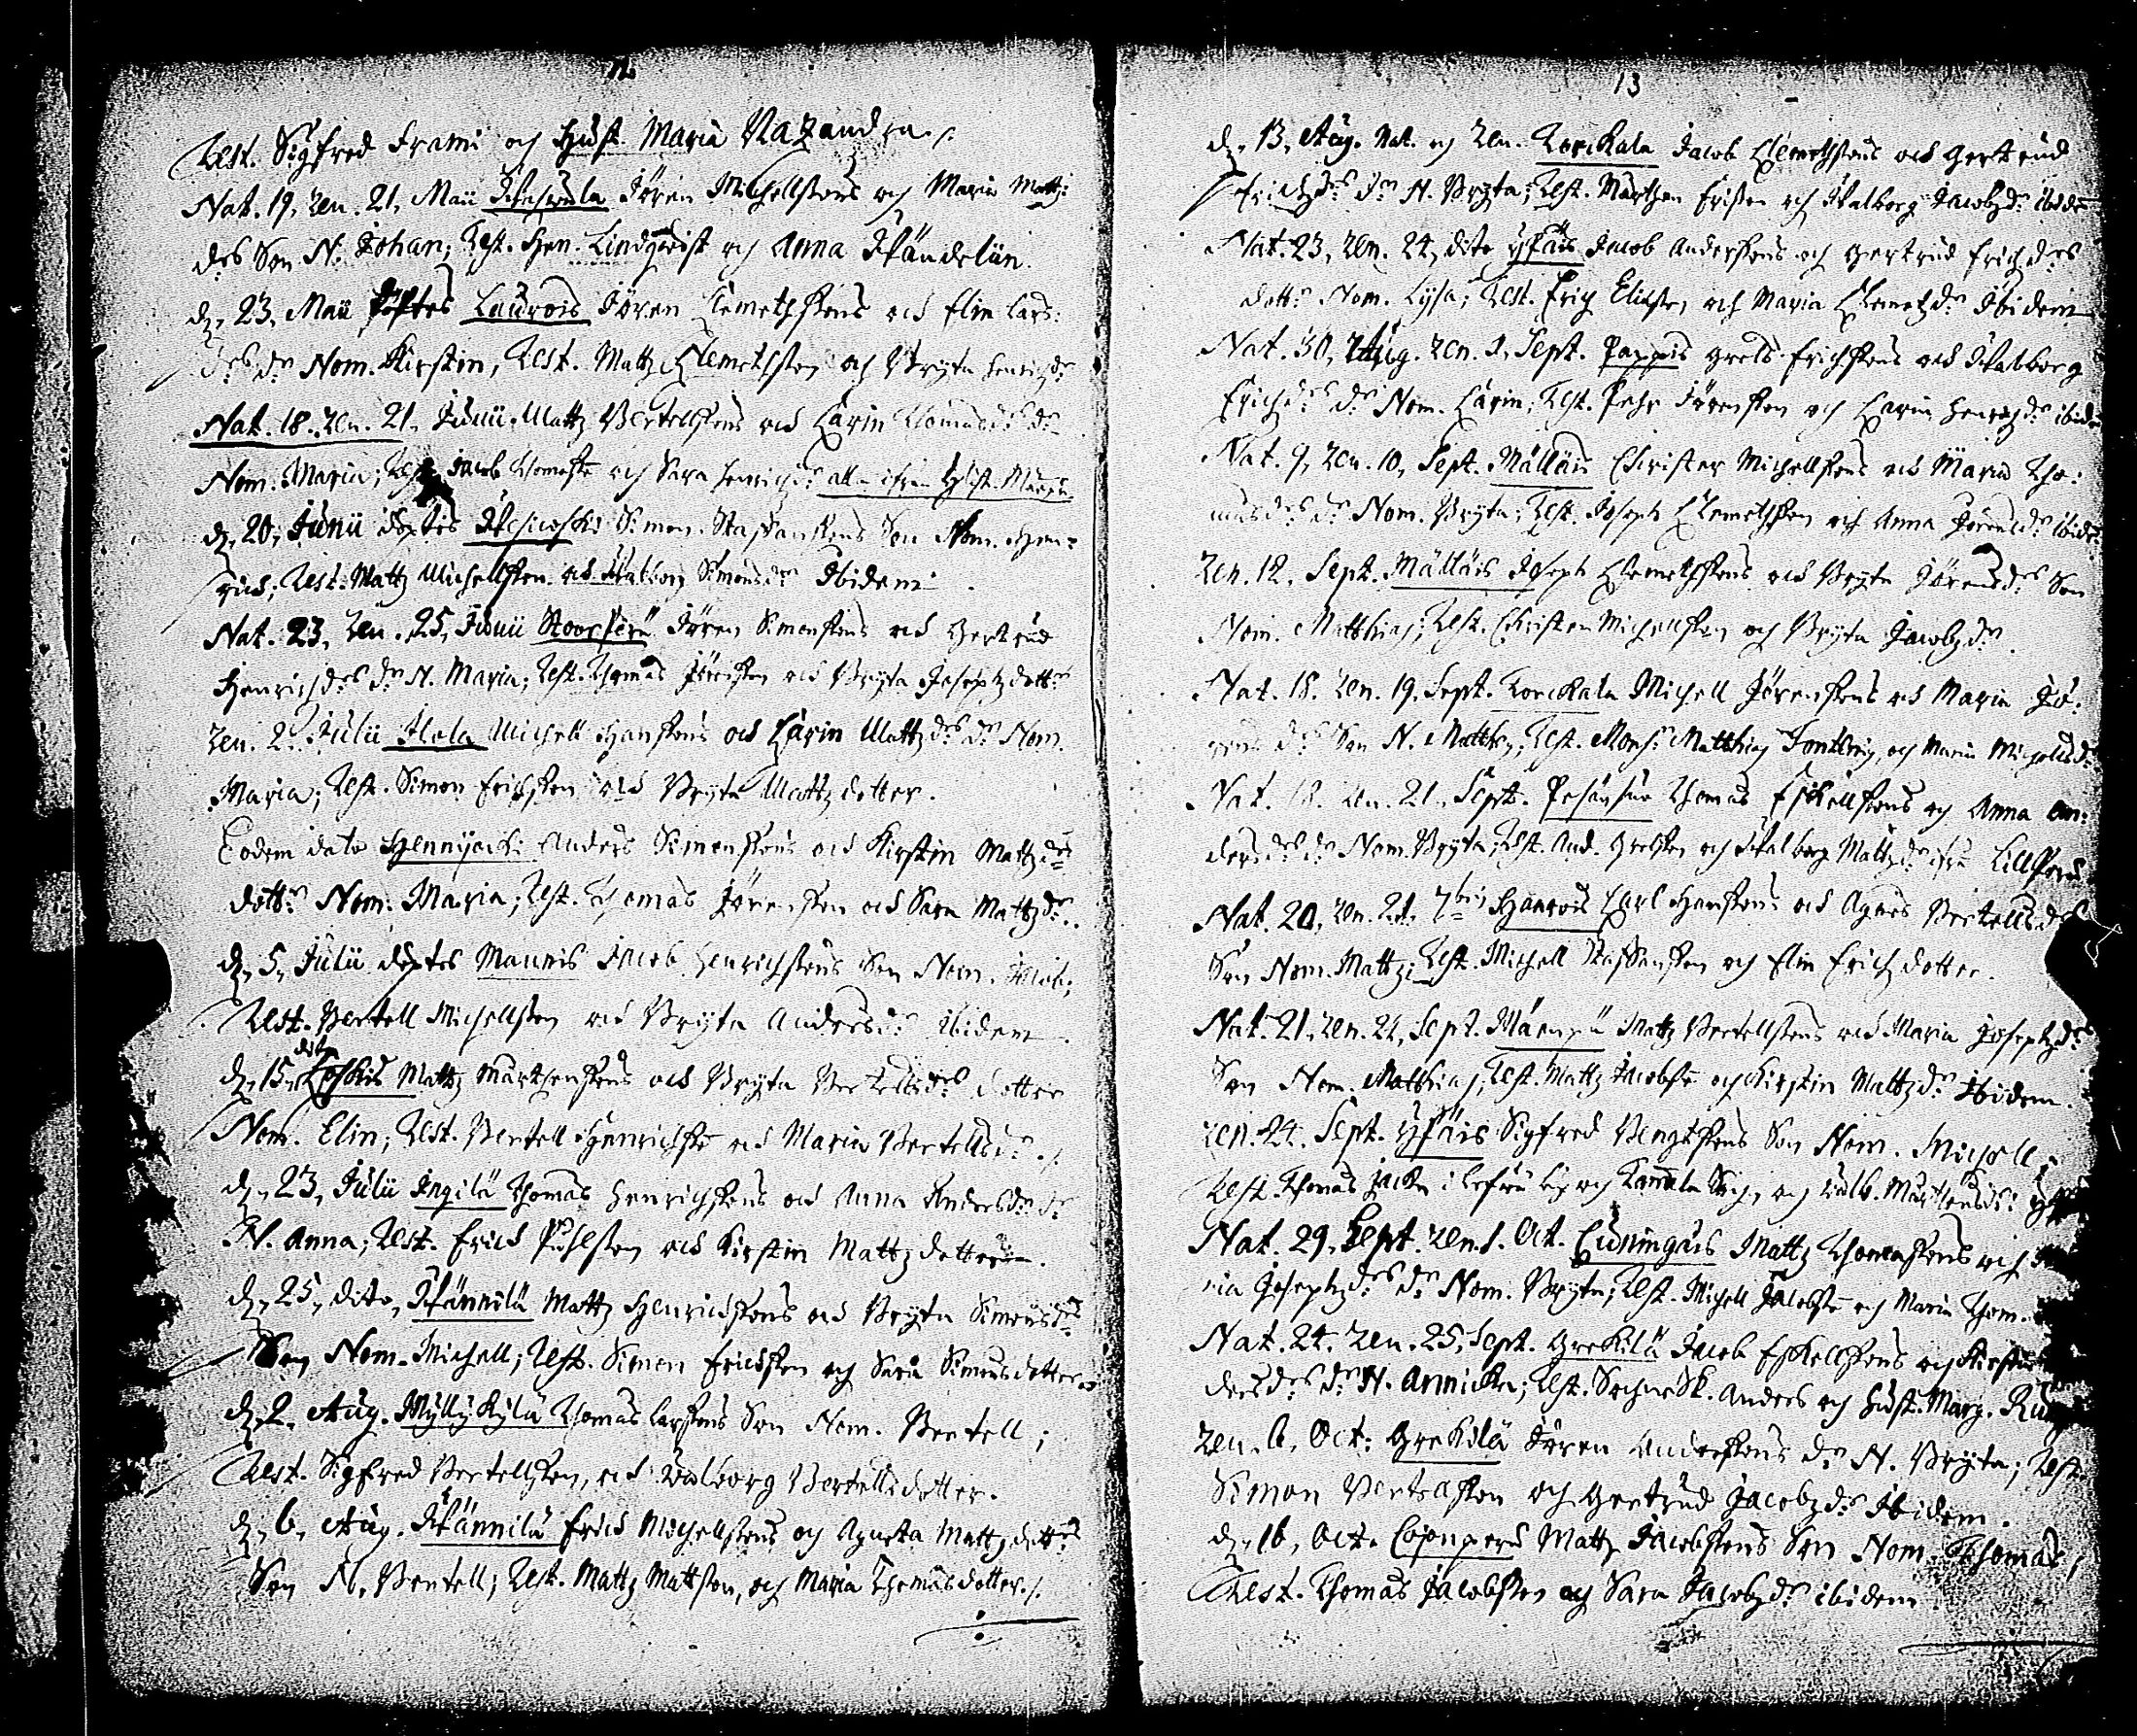 12.
Test. Sigfred Frami och Hust. Maria Nazandra./.
Nat. 19, ren. 21, Maii Jören Michellssons och Maria Mattz:
drs Son N. Johan; Test. Hen. Lindqwist och Anna Wändelin.
d. 23, Maii döptes Laurois Jören Clemetssons och Elin Lars:
drs dr Nom. Kirstin, Test. Mattz Clemetsson och Bryta Henrichzdr
Nat. 18. ren. 21, Junii Mattz Bertellssons och Carin Thomasdrs dr
Nom. Maria; Test. Jacob Thomesson och Sara Henrichzdr alla ifrån
d. 20, Junii döptes Simon Staffanssons Son Nom. Hen:
rich; Test. Mattz Michellsson och Walborg Simonsdr Ibidem.
Nat. 23, ren. 25, Junii Jören Simonssons och Gertrud
Henrichdrs dr N. Maria; Test. Thomas Jörensson och Bryta Josephzdottr
ren. 2, Julii Hola Michell Hanssons och Carin Mattzdrs dr Nom.
Maria; Test. Simon Erichsson och Bryta Mattzdotter.
Eodem dato Hennijocki Anders Simonssons och Kirstin Mattzdrs
dottr Nom. Maria; Test. Thomas Jörensson och Sara Mattzdr.
d. 5, Julii döptes Maunis Jacob Henrichssons Son Nom. Jacob;
Test. Bertell Michellsson och Bryta Andersdr ibidem.
d. 15, dito Coskis Mattz Mårthenssons och Bryta Bertellsdrs dotter
Nom. Elin; Test. Bertell Henrichsson och Maria Bertellsdr./.
d. 23, Julii Ingilä Thomas Henrichssons och Anna Andersdrs dr
N. Anna; Test. Erich Påhlsson och Kirstin Mattzdotter.
d. 25, dito, Wännilä Mattz Henrichssons och Bryta Simonsdrs
Son Nom. Michell; Test. Simon Erichsson och Sara Simonsdotter.
d. 2, Aug. Myllykylä Thomas Larssons Son Nom. Bertell;
Test. Sigfred Bertellsson, och Walborg Bertellsdotter.
d. 6, Aug. Wännilä Erich Michellssons och Agneta Mattzdottrs
Son N. Bertell; Test. Mattz Mattsson, och Maria Thomasdotter./.
13
d. 13, Aug. Nat. och ren. Torckala Jacob Clemetssons och Gertrud
Erichzdrs dr N. Bryta; Test. Mårthen Ersson och Walborg Jacobzdr ibidem
Nat. 23, ren. 24, dito Yfäis Jacob Anderssons och Gertrud Erichdrs
dottr Nom. Lysa; Test. Erich Eliesson och Maria Clemetzdr Ibidem
Nat. 30, Aug. ren. 1, Sept. Pappis Grels Erichssons och Walborg
Erichdrs dr Nom. Carin; Test. Pehr Jörensson och Carin Henrichzdr ibidem
Nat. 9, ren. 10, Sept. Mälläis Christer Michellssons och Maria Tho:
masdrs dr Nom. Bryta; Test. Joseph Clemetsson och Anna Jörensdr ibidem
ren. 12, Sept. Mälläis Joseph Clemetssons och Bryta Jörensdrs Son
Nom. Matthias; Test. Christer Michellsson och Bryta Jacobzdr.
Nat. 18. ren. 19. Sept. Torckala Michell Jörenssons och Maria Jö:
rens drs Son N. Matths; Test. Monsr Matthias och Maria Michellsdr
Nat. 18. ren. 21. Sept. Thomas Eskellssons och Anna An:
dersdrs dr Nom. Bryta; Test. And. Grelsson och Walborg Mattzdr ifrån
Nat. 20, ren. 21. 7bris Hanrois Carl Hanssons och Agnes Bertellsdrs
Son Nom. Mattz; Test. Michell Staffansson och Elin Erichzdotter.
Nat. 21, ren. 24, Sept. Mattz Bertellssons och Maria Josephzdrs
Son Nom. Matthias; Test. Mattz Jacobsson och Kirstin Mattzdr Ibidem.
ren. 24. Sept. Yfäis Sigfred Bengtssons Son Nom. Michell;
Test. Thomas och Walb. Mårthensdr
Nat. 29, Sept. ren. 1. Oct. Cuningais Mattz Thomassons och
ria Josephzdrs dr Nom. Bryta; Test. Michell Jacobsson och Maria Thom.
Nat. 24. ren. 25, Sept. Grekilä Jacob Eskellssons och Kirstin
dersdrs dr N. Annicka; Test. Anders och Hust. Marg.
ren. 6, Oct. Grekilä Jören Anderssons dr N. Bryta; Test.
Simon Bertsasson och Gertrud Jacobzdr Ibidem.
d. 16, Oct. Cojonperä Mattz Jacobssons Son Nom. Thomas;
Test. Thomas Jacobsson och Sara Jacobzdr ibidem.